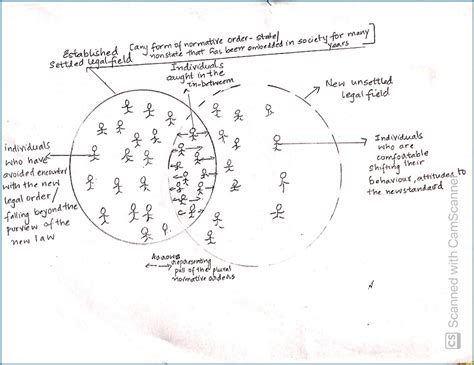 Established (any form of normative order - state/
settled legal field nonstate that has been embedded in society for many
years)
Individuals
caught in the
in-between
New unsettled
legal field
individuals
who have
avoided encounter
with the new
legal order/
falling beyond the
purview of the
new law
Individuals
who are
comfortable
shifting their
behaviour, attitudes to
the new standard
Arrows
representing
pull of the plural
normative orders
CS Scanned with CamScanner